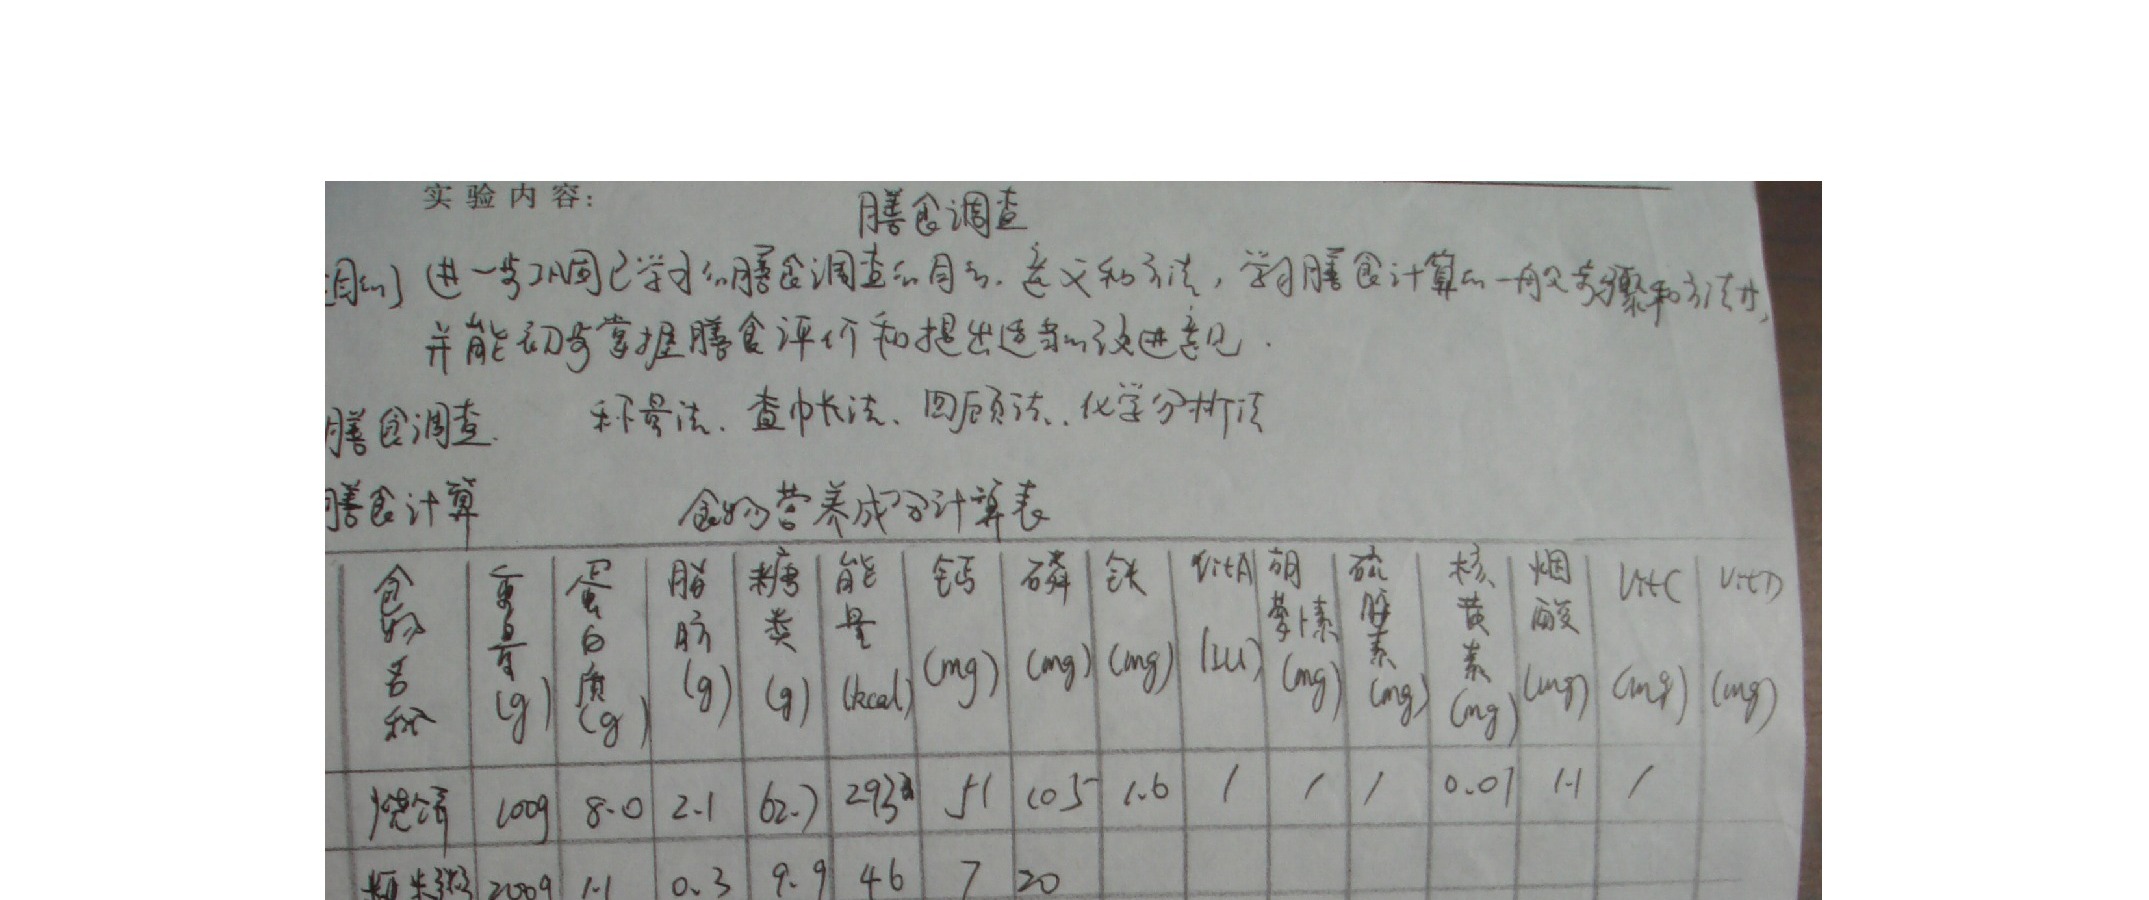 实验内容:
膳食调查
目的】 进一步巩固已学习的膳食调查的目的、意义和方法,学习膳食计算的一般步骤和方法,
并能初步掌握膳食评价和提出适当的改进意见.
膳食调查. 称量法、查帐法、回顾法、化学分析法
膳食计算 食物营养成分计算表
食物名称 重量(g) 蛋白质(g) 脂肪(g) 糖类(g) 能量(kcal) 钙(mg) 磷(mg) 铁(mg) VitA(IU) 胡萝卜素(mg) 硫胺素(mg) 核黄素(mg) 烟酸(mg) VitC(mg) VitD(mg)
烧饼 100g 8.0 2.1 62.7 293 51 105 1.6 / / / 0.01 1.1 /
粳米粥 200g 1.1 0.3 9.9 46 7 20